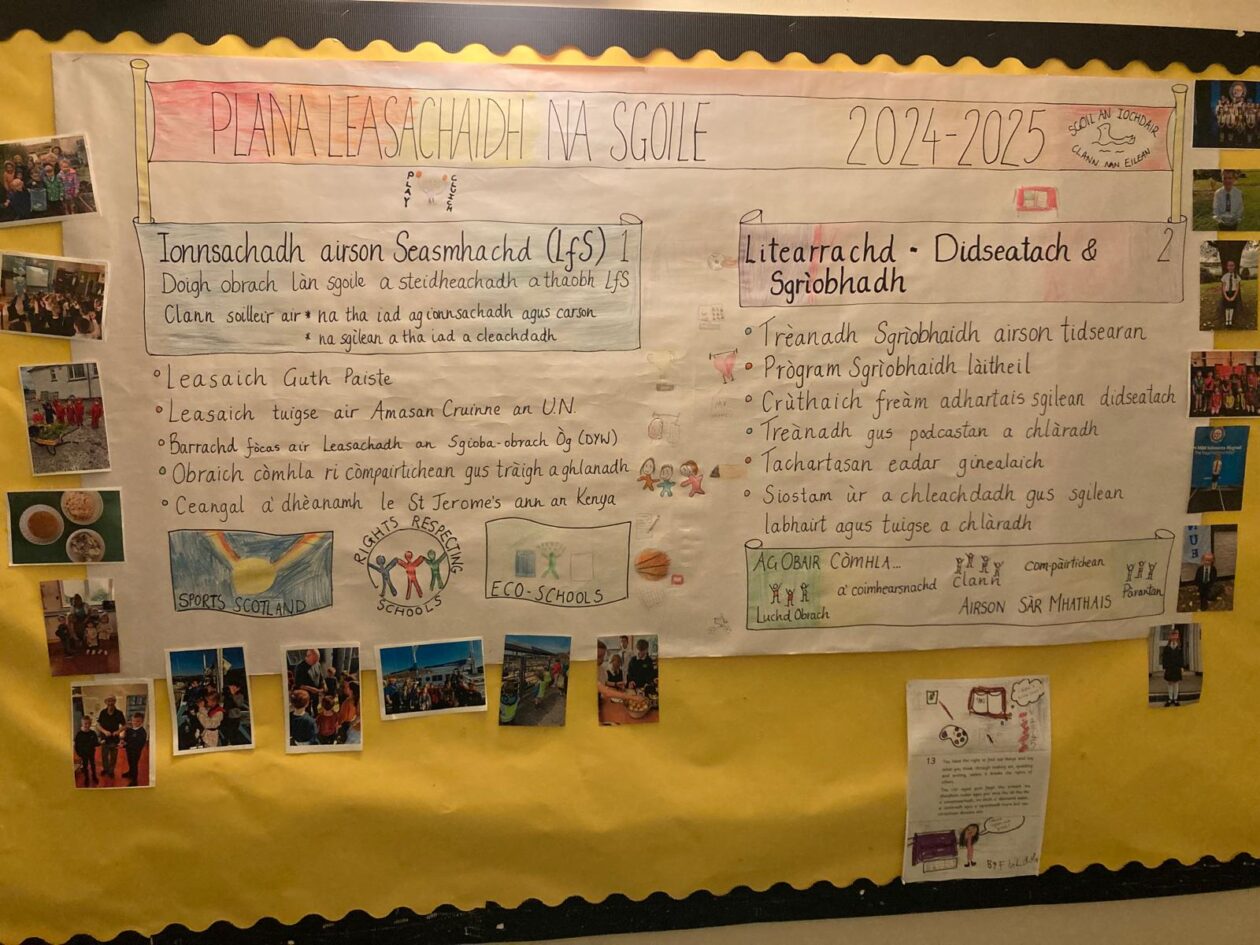 PLANA LEASACHAIDH NA SGOILE 2024-2025
SGOIL AN IOCHDAIR
CLANN NAN EILEAN
PLAY
CLUICH
Ionnsachadh airson Seasmhachd (LfS) 1
Doigh obrach làn sgoile a steidheachadh a thaobh LfS
Clann soilleir air * na tha iad ag ionnsachadh agus carson
* na sgilean a tha iad a cleachdadh
Leasaich Guth Paiste
Leasaich tuigse air Amasan Cruinne an U.N.
Barrachd fòcas air Leasachadh an Sgioba-obrach Òg (DYW)
Obraich còmhla ri còmpairtichean gus tràigh aghlanadh
Ceangal a' dhèanamh le St Jerome's ann an Kenya
SPORTS SCOTLAND
RIGHTS RESPECTING
SCHOOLS
ECO-SCHOOLS
Litearrachd - Didseatach & 2
Sgrìobhadh
Trèanadh Sgrìobhaidh airson tidsearan
Prògram Sgrìobhaidh làitheil
Crùthaich freàm adhartais sgilean didseatach
Treànadh gus podcastan a chlàradh
Tachartasan eadar ginealaich
Siostam ùr a chleachdadh gus sgilean
labhairt agus tuigse a chlàradh
AG OBAIR CÒMHLA...
Luchd Obrach
a' coimhearsnachd
Clann
com-pàirtichean
Pàrantan
AIRSON SÀR MHATHAIS
13
You have the right to find out things and say
what you think through making art, speaking
and writing, unless it breaks the rights of
others.